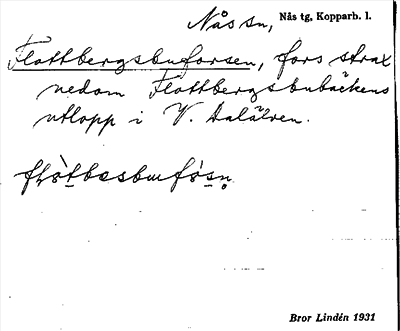 Nås sn, Nås tg, Kopparb. l.
Flottbergsbuforsen, fors strax
nedom Flottbergsbubäckens
utlopp i V. Dalälven.
Bror Lindén 1931